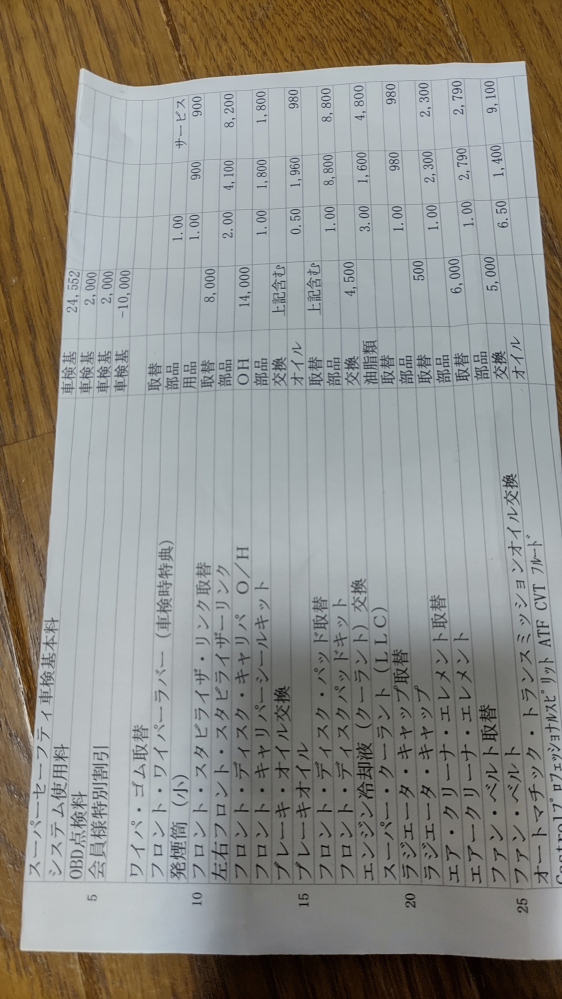 スーパーセーフティ車検基本料 車検基 24,552
システム使用料 車検基 2,000
OBD点検料 車検基 2,000
5 会員様特別割引 車検基 -10,000
ワイパ・ゴム取替 取替
フロント・ワイパーラバー（車検時特典） 部品 1.00 サービス
発煙筒（小） 用品 1.00 900 900
10 フロント・スタビライザ・リンク取替 取替 8,000
左右フロント・スタビライザーリンク 部品 2.00 4,100 8,200
フロント・ディスク・キャリパ O／H OH 14,000
フロント・キャリパーシールキット 部品 1.00 1,800 1,800
ブレーキ・オイル交換 交換 上記含む
15 ブレーキオイル オイル 0.50 1,960 980
フロント・ディスク・パッド取替 取替 上記含む
フロント・ディスクパッドキット 部品 1.00 8,800 8,800
エンジン冷却液（クーラント）交換 交換 4,500
スーパー・クーラント（LLC） 油脂類 3.00 1,600 4,800
20 ラジエータ・キャップ取替 取替
ラジエータ・キャップ 部品 1.00 980 980
エア・クリーナ・エレメント取替 取替 500
エアークリーナ・エレメント 部品 1.00 2,300 2,300
ファン・ベルト取替 取替 6,000
25 ファン・ベルト 部品 1.00 2,790 2,790
オートマチック・トランスミッションオイル交換 交換 5,000
Controlﾌﾟﾛﾌｪｯｼｮﾅﾙｽﾋﾟﾘｯﾄ ATF CVT ﾌﾙｰﾄﾞ オイル 6.50 1,400 9,100